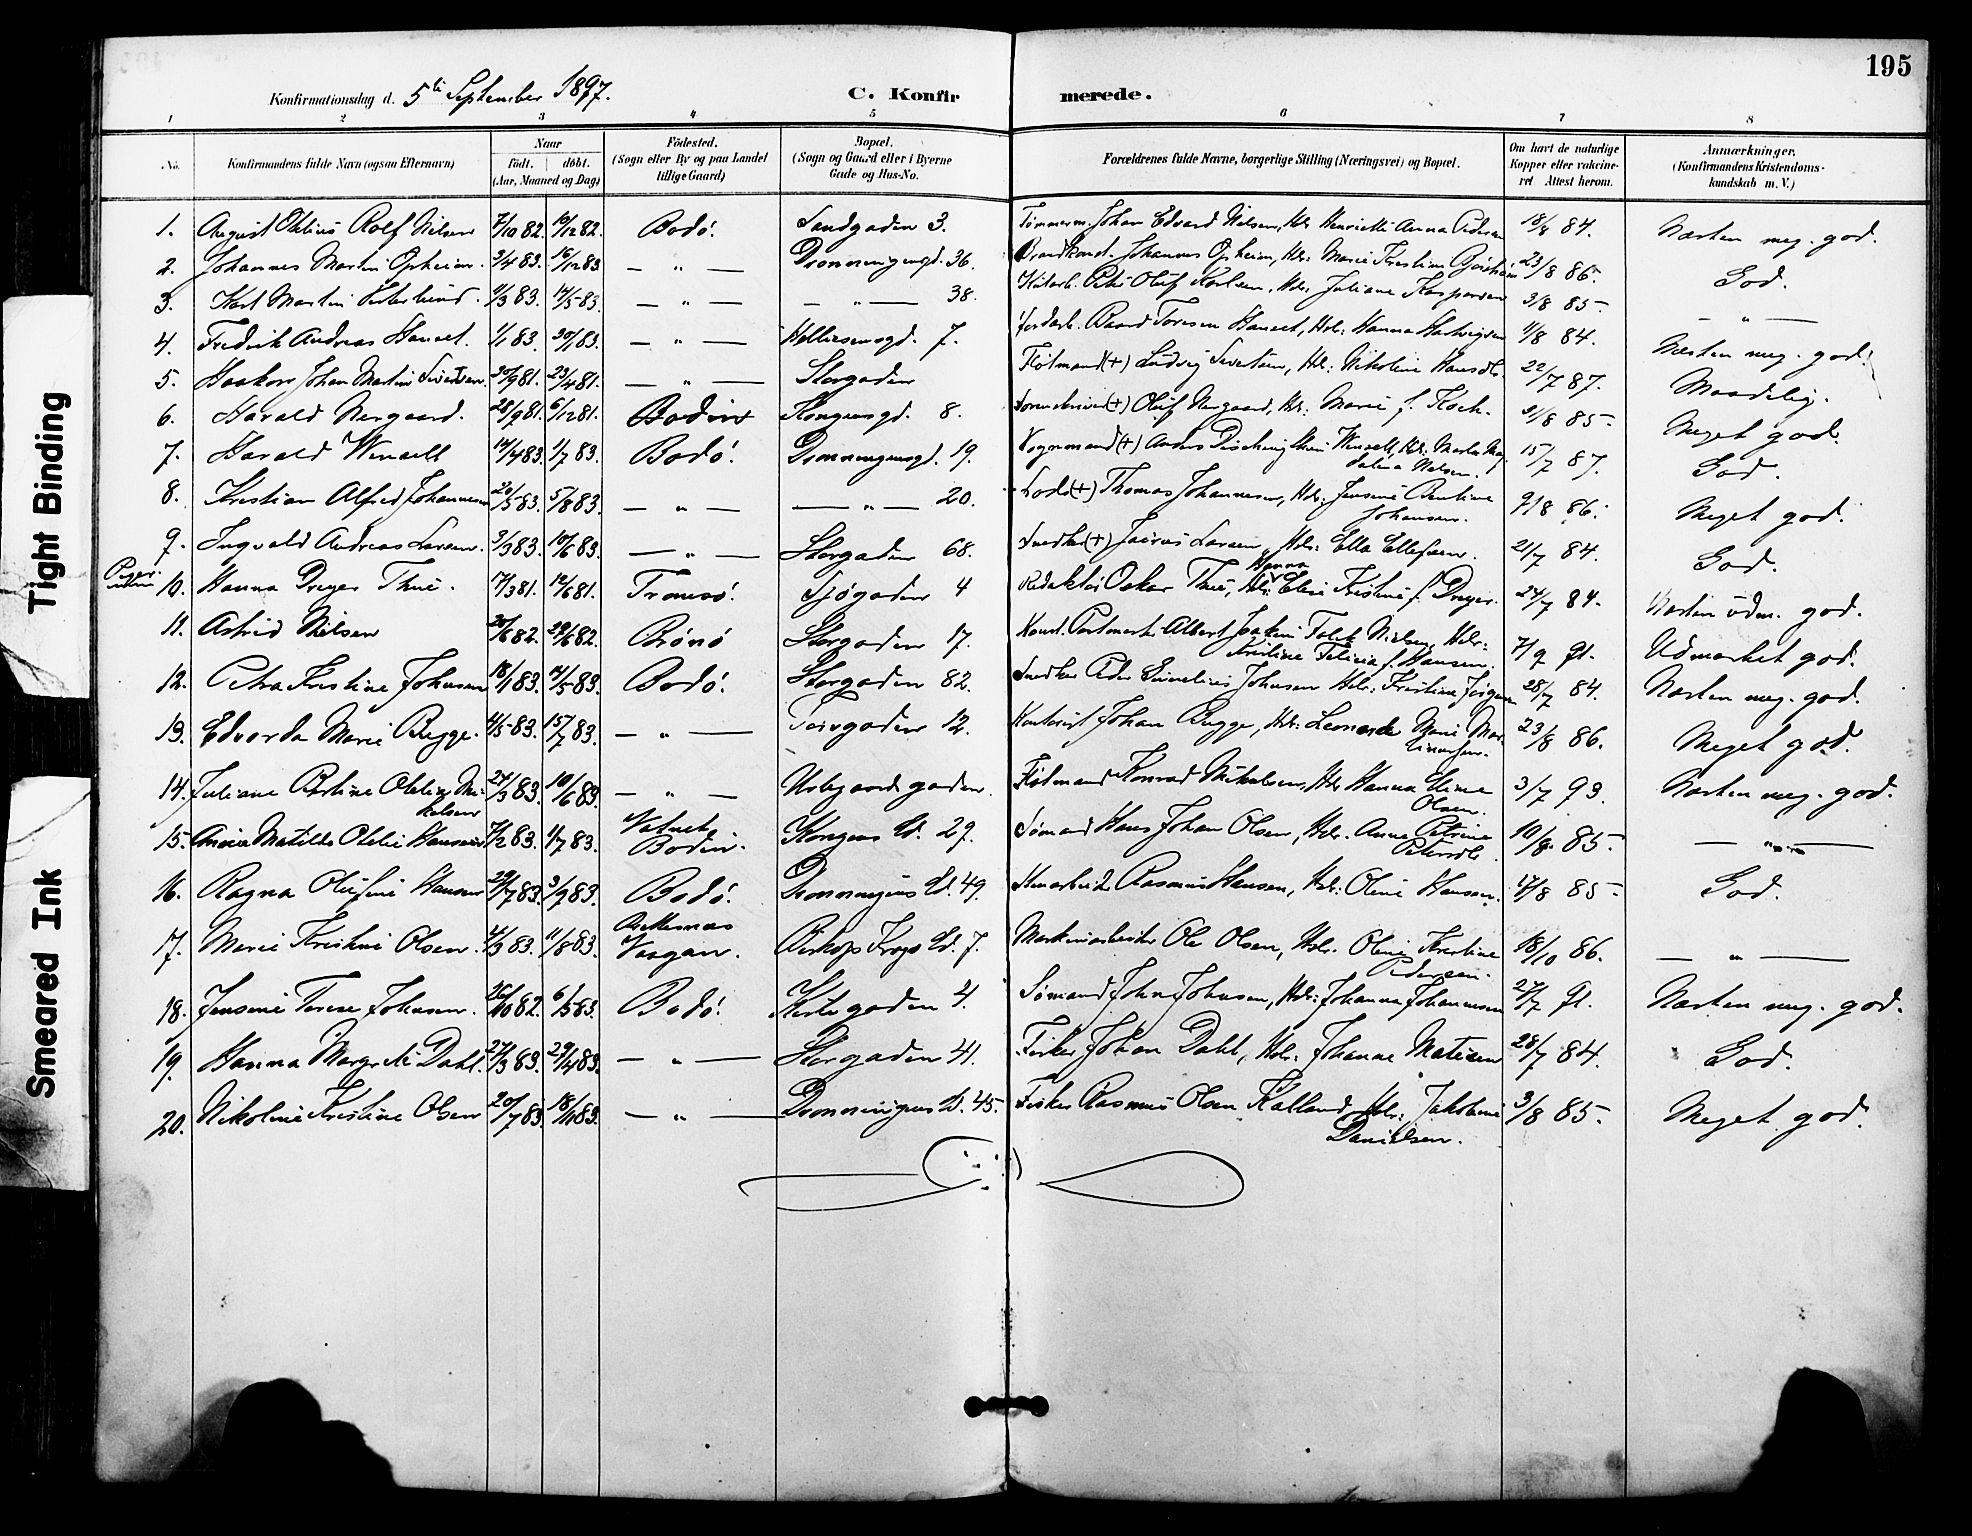 195
Konfirmationsdag d. 5te September 1897.
C. Konfirmerede.
1 2 3 4 5 6 7 8
No. Konfirmandens fulde Navn (ogsaa Efternavn) Naar født. døbt. (Aar, Maaned og Dag) Fødested. (Sogn eller By og paa Landet tillige Gaard) Bopæl. (Sogn og Gaard eller i Byerne Gade og Hus-No. Forældrenes fulde Navne, borgerlige Stilling (Næringsvei) og Bopæl. Om havt de naturlige Kopper eller vaccineret Attest herom. Anmærkninger, (Konfirmandens Kristendomskundskab m. V.)
1. August Rolf Nilsen 7/10 82. 10/12 82. Bodø. Sandgaden 3. Tømmerm. Johan Edvard Nilsen, Hdr. Henriette Anna Pedersen 18/8 84. Næsten meg. god.
2. Johannes Martin Opheim. 3/4 83. 16/12 83 — " — Dronningensgd. 36. Brandkonst. Johannes Opheim, Hdr. Marie Kristine 23/8 86. God.
3. Karl Martin 4/3 83. 14/5 83. — " — — " — 38. Oluf Karlsen, Hdr. Juliane Kaspersen 3/8 85. — " —
4. Fredrik Andreas Hansen. 1/1 83. 30/1 83. — " — gd. 7. Jordarb. Baard Toresen Hdr. Hanna Hartvigsen 11/8 84. Næsten meg. god.
5. Haakon Johan Martin Sivertsen. 30/9 81. 23/4 81. — " — Storgaden Fløtmand (+) Ludvig Sivertsen, Hdr: Nikoline Hansdtr. 22/7 87. Maadelig.
6. Harald Nergaard. 28/9 81. 6/12 81. Bodin Kongensgd. 8. (+) Oluf Nergaard, Hdr. Marie f. Koch. 3/8 85. Meget god.
7. Harald Wensell 14/4 83. 1/7 83. Bodø. Dronningensgd. 19. Vognmand (+) Anders Wensell, Hdr. Marta Magdalena Nilsen. 15/7 87. God.
8. Kristian Alfred Johannesen 20/5 83. 5/8 83. — " — — " — 20. Lods (+) Thomas Johannesen, Hdr. Jensine Bentine Johansen. 9/8 86. Meget god.
9. Ingvald Andreas Larsen. 3/3 83. 10/6 83. — " — Storgaden 68. Snedker (+) Jairus Larsen, Hdr: Ella Ellefsen. 21/7 84. God.
10. Hanna Dreyer Thue. 17/3 81. 12/6 81. Tromsø. Sjøgaden 4 Redaktør Oskar Thue, Hdr. Hanna Elise Kristine f. Dreyer. 24/7 84. Næsten udm. god.
11. Astrid Nielsen 20/6 82. 29/6 82. Brönö Storgaden 17. Konst. Postmester Albert Joakim Falck Nielsen, Hdr: Kristine Felicia f. Hansen. 7/9 91. Udmærket god.
12. Petra Kristine Johnsen 18/1 83. 14/5 83. Bodø. Storgaden 82. Snedker Peder Johnsen Hdr. Kristine 28/7 84. Næsten meg. god.
13. Edvarda Marie Bugge. 4/5 83. 15/7 83. — " — Torvgaden 12. Kontorist Johan Bugge, Hdr. Leonarde Marie Martinussen. 23/8 86. Meget god.
14. Juliane Bertine Mikelsen 27/3 83. 10/6 83. — " — gaden. Fløtmand Konrad Mikelsen, Hdr Hanna Eline Olsen. 3/7 93. Næsten meg. god.
15. Matilde Otelie Hansen 7/2 83. 1/7 83. Bodin. Kongens Gd. 29. Sømand Hans Johan Olsen, Hdr. Anna Petrine Petersdtr. 10/8 85. — " —
16. Ragna Olufine Hansen 29/7 83. 3/9 83. Bodø. Dronningens Gd. 49. Stenarbeid. Rasmus Hansen, Hdr: Oline Hansen. 4/8 85. God.
17. Marie Kristine Olsen. 4/3 83. 11/8 83. Brettesnæs Vaagan. Biskop Krogs Gd. 7. Maskinarbeider Ole Olsen, Hdr. Oline Kristine Pedersen. 18/10 86. — " —
18. Jensine Terese Johnsen. 26/10 82. 6/5 83. Bodø. Kirkegaden 4. Sømand John Johnsen, Hdr: Johanna Johannesen 27/7 91. Næsten meg. god.
19. Hanna Margrete Dahl. 27/3 83. 29/4 83. — " — Storgaden 41. Fisker Johan Dahl, Hdr. Johanne Matisen 28/7 84. God.
20. Nikoline Kristine Olsen 20/7 83. 18/11 83. — " — Dronningens Gd. 45. Fisker Rasmus Olsen Kalland, Hdr: Jakobine Danielsen. 3/8 85. Meget god.
Tight Binding
Smeared Ink